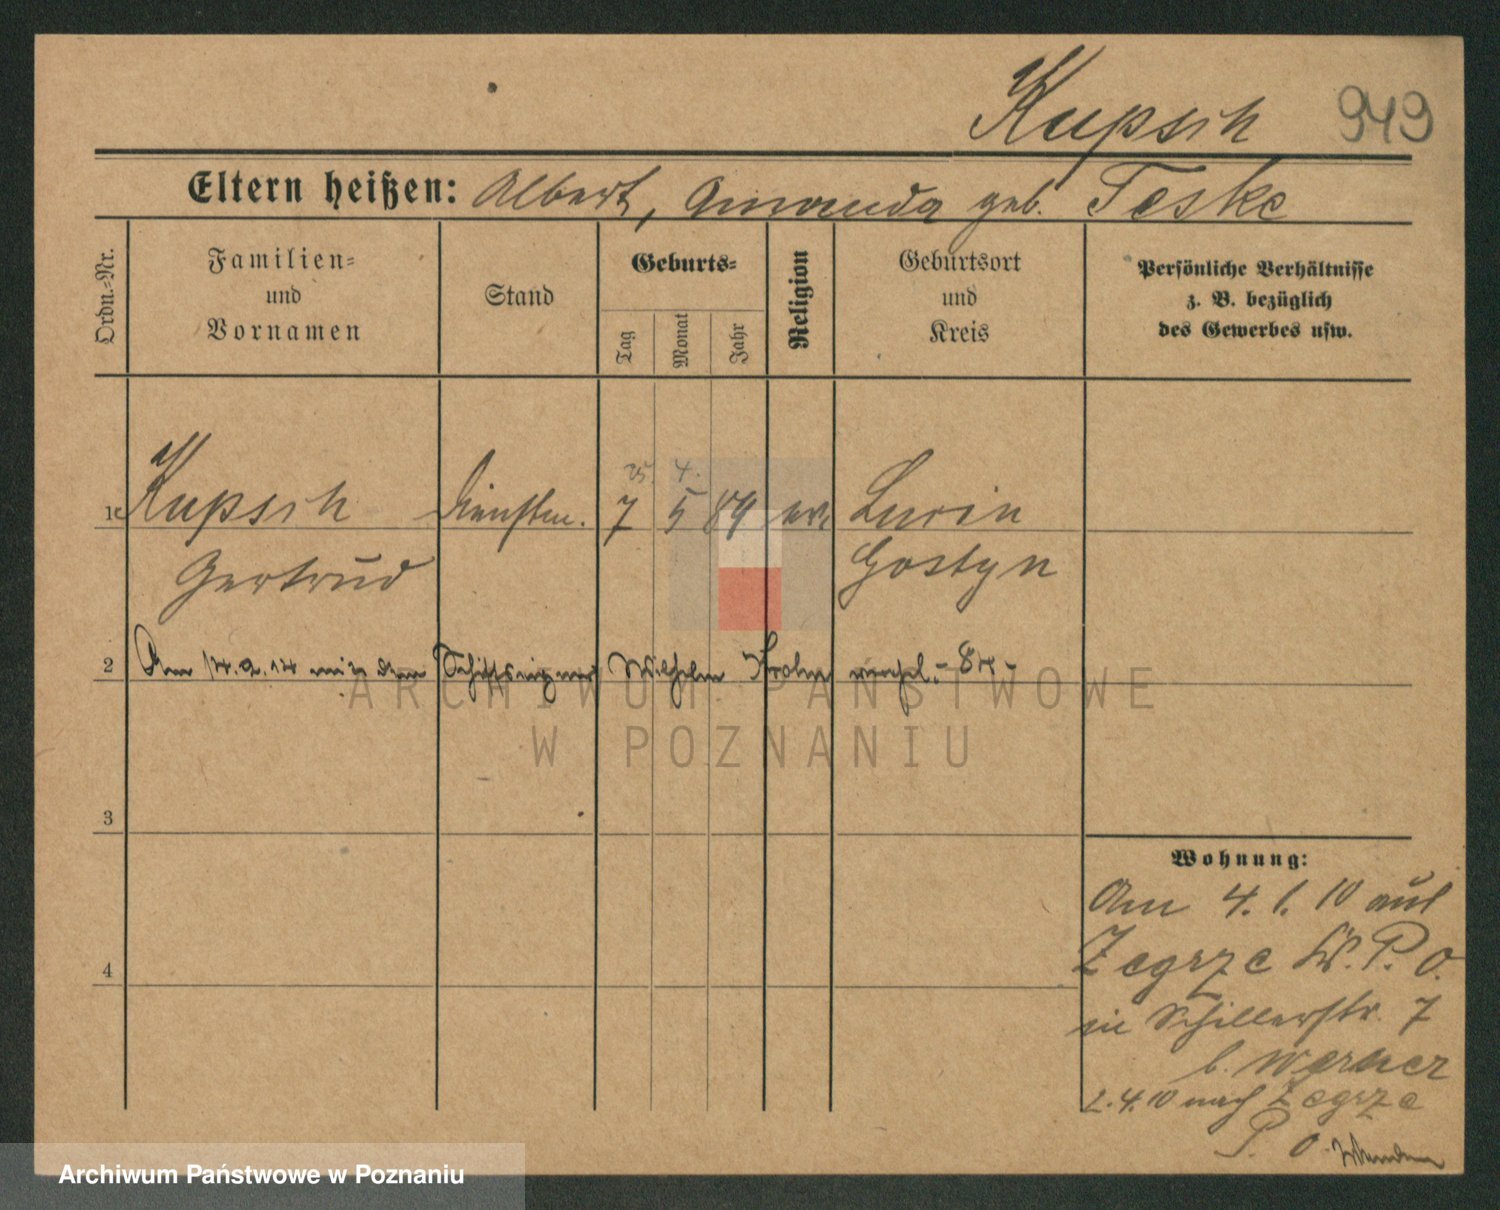 Kupsch 949
Eltern heißen: Albert, Amanda geb. Teske
Ordn.-Nr.
Familien-
und
Vornamen
Stand
Geburts-
Tag
Monat
Jahr
Religion
Geburtsort
und
Kreis
Persönliche Verhältnisse
z. B. bezüglich
des Gewerbes usw.
25. 4.
1 Kupsch Dienstm. 7 5 89 ev. Lurin
Gertrud Gostyn
2 Am 14.2.14 mit dem Schiffseigner Wilhelm verehel.
ARCHIWUM PAŃSTWOWE
W POZNANIU
3
Wohnung:
Am 4. 1. 10 aus
Zegrze W. P. O.
in Schillerstr. 7
b. Werner
2.4.10 nach Zegrze
P. O.
4
Archiwum Państwowe w Poznaniu